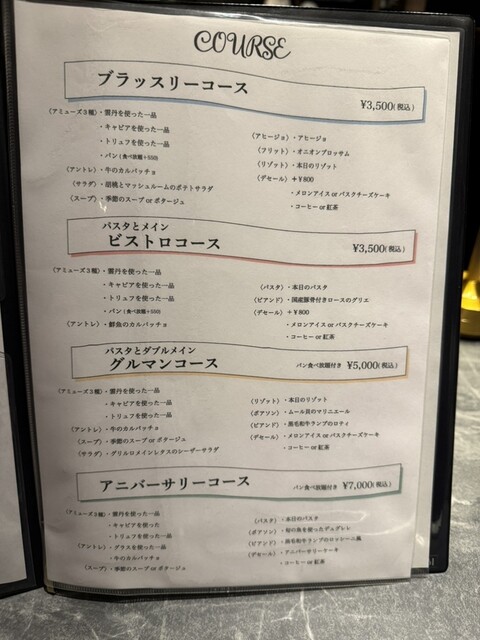 COURSE
ブラッスリーコース
¥3,500(税込)
〈アミューズ３種〉・雲丹を使った一品
・キャビアを使った一品
・トリュフを使った一品
・パン(食べ放題+550)
〈アントレ〉・牛のカルパッチョ
〈サラダ〉・胡桃とマッシュルームのポテトサラダ
〈スープ〉・季節のスープ or ポタージュ
〈アヒージョ〉・アヒージョ
〈フリット〉・オニオンブロッサム
〈リゾット〉・本日のリゾット
〈デセール〉＋￥800
・メロンアイス or バスクチーズケーキ
・コーヒー or 紅茶
パスタとメイン
ビストロコース
¥3,500(税込)
〈アミューズ３種〉・雲丹を使った一品
・キャビアを使った一品
・トリュフを使った一品
・パン(食べ放題+550)
〈アントレ〉・鮮魚のカルパッチョ
〈パスタ〉・本日のパスタ
〈ビアンド〉・国産豚骨付きロースのグリエ
〈デセール〉＋￥800
・メロンアイス or バスクチーズケーキ
・コーヒー or 紅茶
パスタとダブルメイン
グルマンコース
パン食べ放題付き ¥5,000(税込)
〈アミューズ３種〉・雲丹を使った一品
・キャビアを使った一品
・トリュフを使った一品
〈アントレ〉・牛のカルパッチョ
〈スープ〉・季節のスープ or ポタージュ
〈サラダ〉・グリルロメインレタスのシーザーサラダ
〈リゾット〉・本日のリゾット
〈ポアソン〉・ムール貝のマリニエール
〈ビアンド〉・黒毛和牛ランプのロティ
〈デセール〉・メロンアイス or バスクチーズケーキ
・コーヒー or 紅茶
アニバーサリーコース
パン食べ放題付き ¥7,000(税込)
〈アミューズ３種〉・雲丹を使った一品
・キャビアを使った
・トリュフを使った一品
〈アントレ〉・グラスを使った一品
・牛のカルパッチョ
〈スープ〉・季節のスープ or ポタージュ
〈パスタ〉・本日のパスタ
〈ポアソン〉・旬の魚を使ったデュグレレ
〈ビアンド〉・黒毛和牛ランプのロッシーニ風
〈デセール〉・アニバーサリーケーキ
・コーヒー or 紅茶